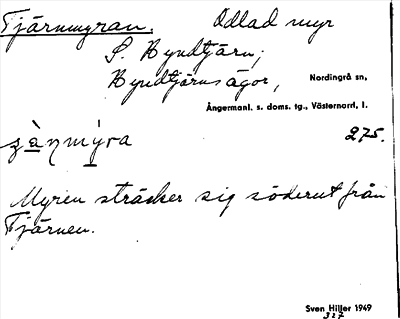 Tjärnmyran. Odlad myr
S. Byndtjärn;
Byndtjärnsägor, Nordingrå sn,
Ångermanl. s. doms. tg., Västernorrl. l.
275.
Myren sträcker sig söderut från
Tjärnen.
Sven Hiller 1949
327